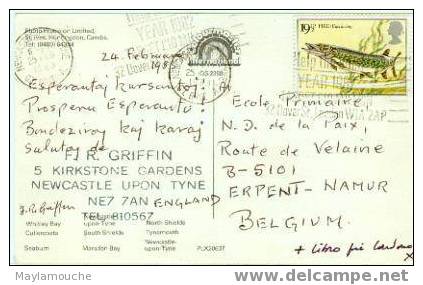 Photo Precision Limited,
St. Ives, Huntingdon, Cambs.
International
24 Februaro
198
Esperantaj kursantoj!
Prosperu Esperanto!
Bondeziroj kaj karaj
salutoj de
F. R. GRIFFIN
5 KIRKSTONE GARDENS
NEWCASTLE UPON TYNE
NE7 7AN ENGLAND
TEL 810567
F. R. Griffin
Newcastle-upon-Tyne
North Shields
Whitley Bay
Cullercoats
South Shields
Tynemouth
Seaburn
Marsden Bay
Newcastle-upon-Tyne
PLX20637
19½
YEAR 1982
Al
Ecole Primaire
N. D. de la Paix,
Route de Velaine
B-5101
ERPENT-NAMUR
BELGIUM.
+ Libro
Maylamouche
delcampe.net